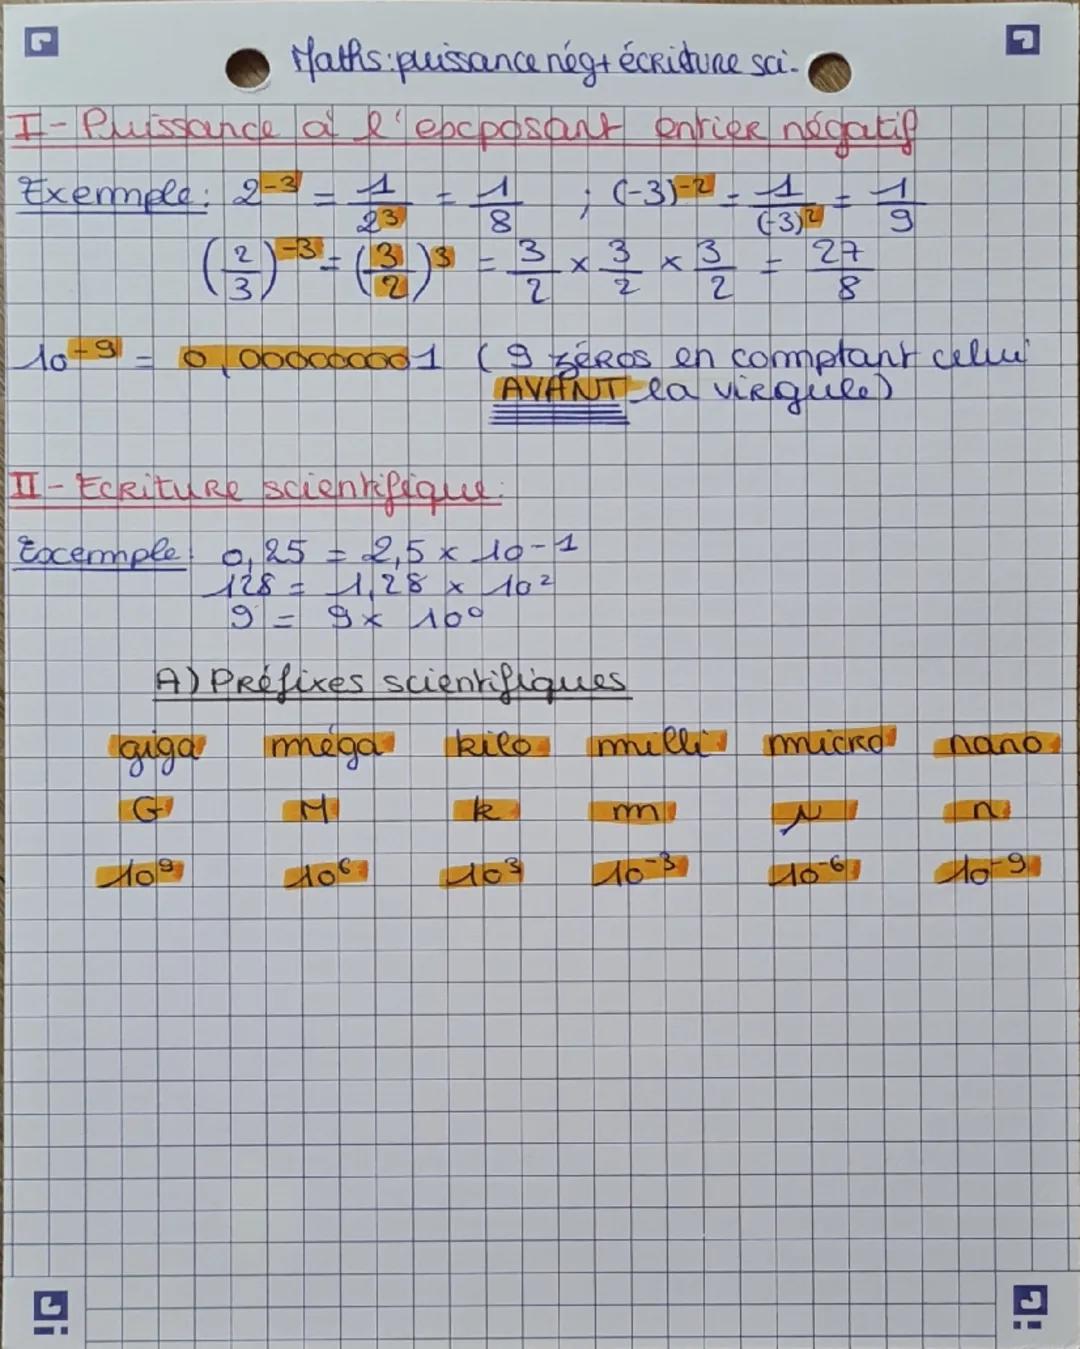 Maths: puissance nég + écriture sci.
I - Puissance à l'exposant entier négatif
Exemple: 2⁻³ = 1/2³ = 1/8 ; (-3)⁻² = 1/(-3)² = 1/9
(2/3)⁻³ = (3/2)³ = 3/2 × 3/2 × 3/2 = 27/8
10⁻⁹ = 0,000000001 (9 zéros en comptant celui
AVANT la virgule)
II - Ecriture scientifique:
Exemple: 0,25 = 2,5 × 10-1
128 = 1,28 × 10²
9 = 9 × 10⁰
A) Préfixes scientifiques
giga méga kilo milli micro nano
G M k m μ n
10⁹ 10⁶ 10³ 10⁻³ 10⁻⁶ 10⁻⁹